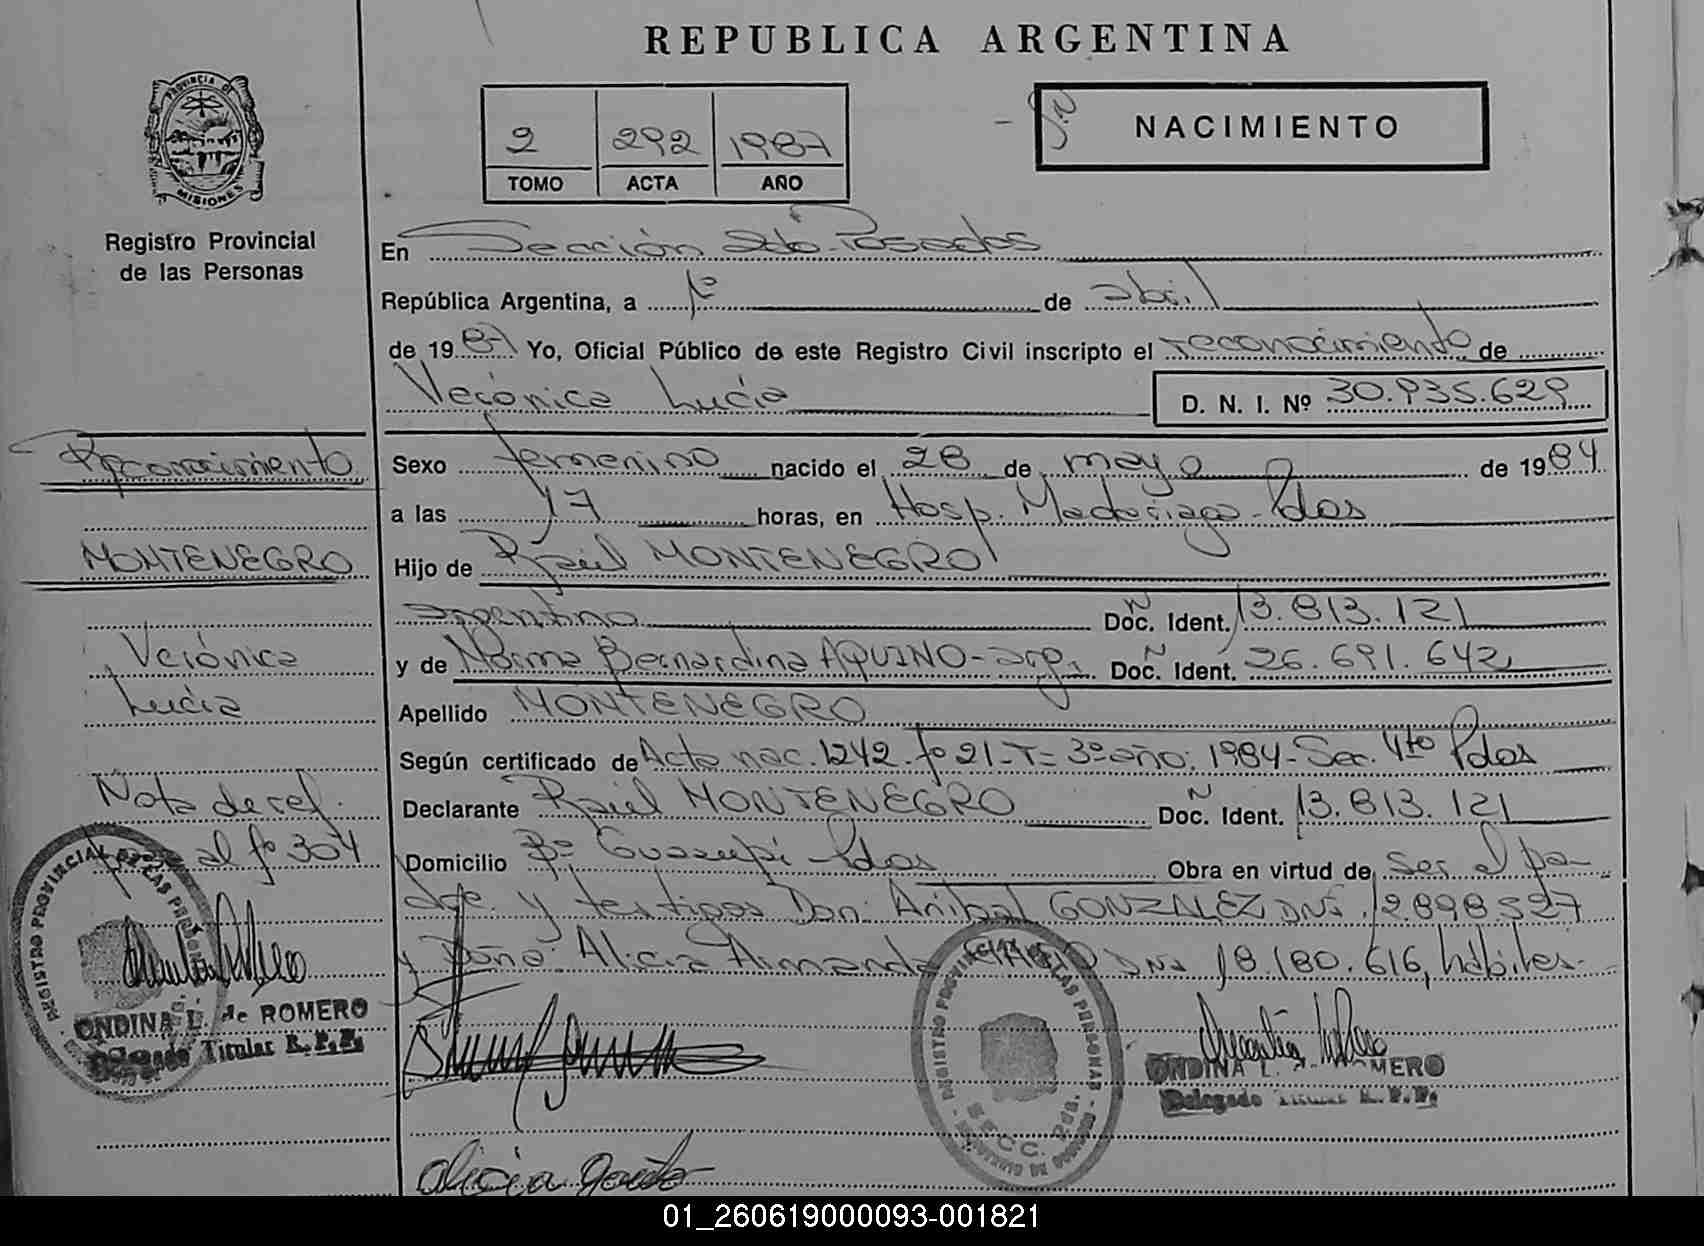 REPUBLICA ARGENTINA
PROVINCIA DE
MISIONES
Registro Provincial
de las Personas
2 292 1987
TOMO ACTA AÑO
NACIMIENTO
En Sección 2do. Posadas
República Argentina, a 1º de abril
de 1987 Yo, Oficial Público de este Registro Civil inscripto el reconocimiento de
Verónica Lucía D. N. I. Nº 30.935.629
Reconocimiento
Sexo femenino nacido el 28 de mayo de 1984
a las 17 horas, en Hosp. Madariaga - Pdas
MONTENEGRO
Hijo de Raúl MONTENEGRO
argentino Doc. Ident. 13.813.121
Verónica
y de Norma Bernardina AQUINO - arg. Doc. Ident. 26.691.642
Lucía
Apellido MONTENEGRO
Según certificado de Acta nac. 1242. fº 21 - T= 3º año: 1984 - Sec. 4to Pdas
Nota de ref.
Declarante Raúl MONTENEGRO Doc. Ident. 13.813.121
al fº 304
Domicilio Bº Guazupí - Pdas Obra en virtud de ser el pa-
dre y testigos Don: Aníbal GONZALEZ DNI. 12.898.527
y Doña: Alicia Armanda DNI 18.180.616, hábiles.
REGISTRO PROVINCIAL DE LAS PERSONAS
ONDINA L. de ROMERO
Delegado Titular R.P.P.
REGISTRO PROVINCIAL DE LAS PERSONAS
ONDINA L. MERO
Delegado Titular R.P.P.
Alicia
01_260619000093-001821